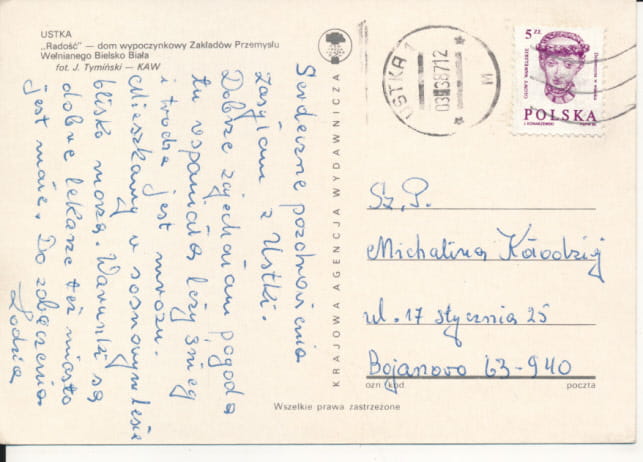 USTKA
„Radość” — dom wypoczynkowy Zakładów Przemysłu
Wełnianego Bielsko Biała
fot. J. Tymiński — KAW
Serdeczne pozdrowienia
zasyłam z Ustki.
Dobrze zajechałam pogoda
tu wspaniała leży śnieg
i trochę jest mrozu.
Mieszkamy w sosnowym lesie
blisko morza. Warunki są
dobre lekarze też miasto
jest małe. Do zobaczenia
Lodzia
KRAJOWA AGENCJA WYDAWNICZA
USTKA 1
M
5 ZŁ
GŁOWY WAWELSKIE
POLSKA
Sz. P.
Michalina Kołodziej
ul. 17 stycznia 25
Bojanowo 63-940
ozn kod poczta
Wszelkie prawa zastrzeżone